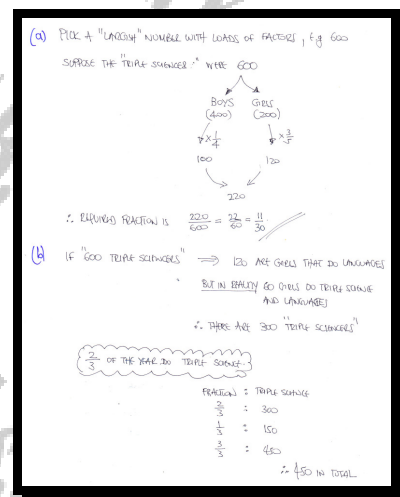 (a) PICK A "LARGISH" NUMBER WITH LOADS OF FACTORS, E.g 600
SUPPOSE THE "TRIPLE SCIENCERS" WERE 600
BOYS GIRLS
(400) (200)
×1/4 ×3/5
100 120
220
∴ REQUIRED FRACTION IS 220/600 = 22/60 = 11/30
(b) IF "600 TRIPLE SCIENCERS" ⟹ 120 ARE GIRLS THAT DO LANGUAGES
BUT IN REALITY 60 GIRLS DO TRIPLE SCIENCE
AND LANGUAGES
∴ THERE ARE 300 "TRIPLE SCIENCERS"
2/3 OF THE YEAR DO TRIPLE SCIENCE
FRACTION : TRIPLE SCIENCE
2/3 : 300
1/3 : 150
3/3 : 450
∴ 450 IN TOTAL